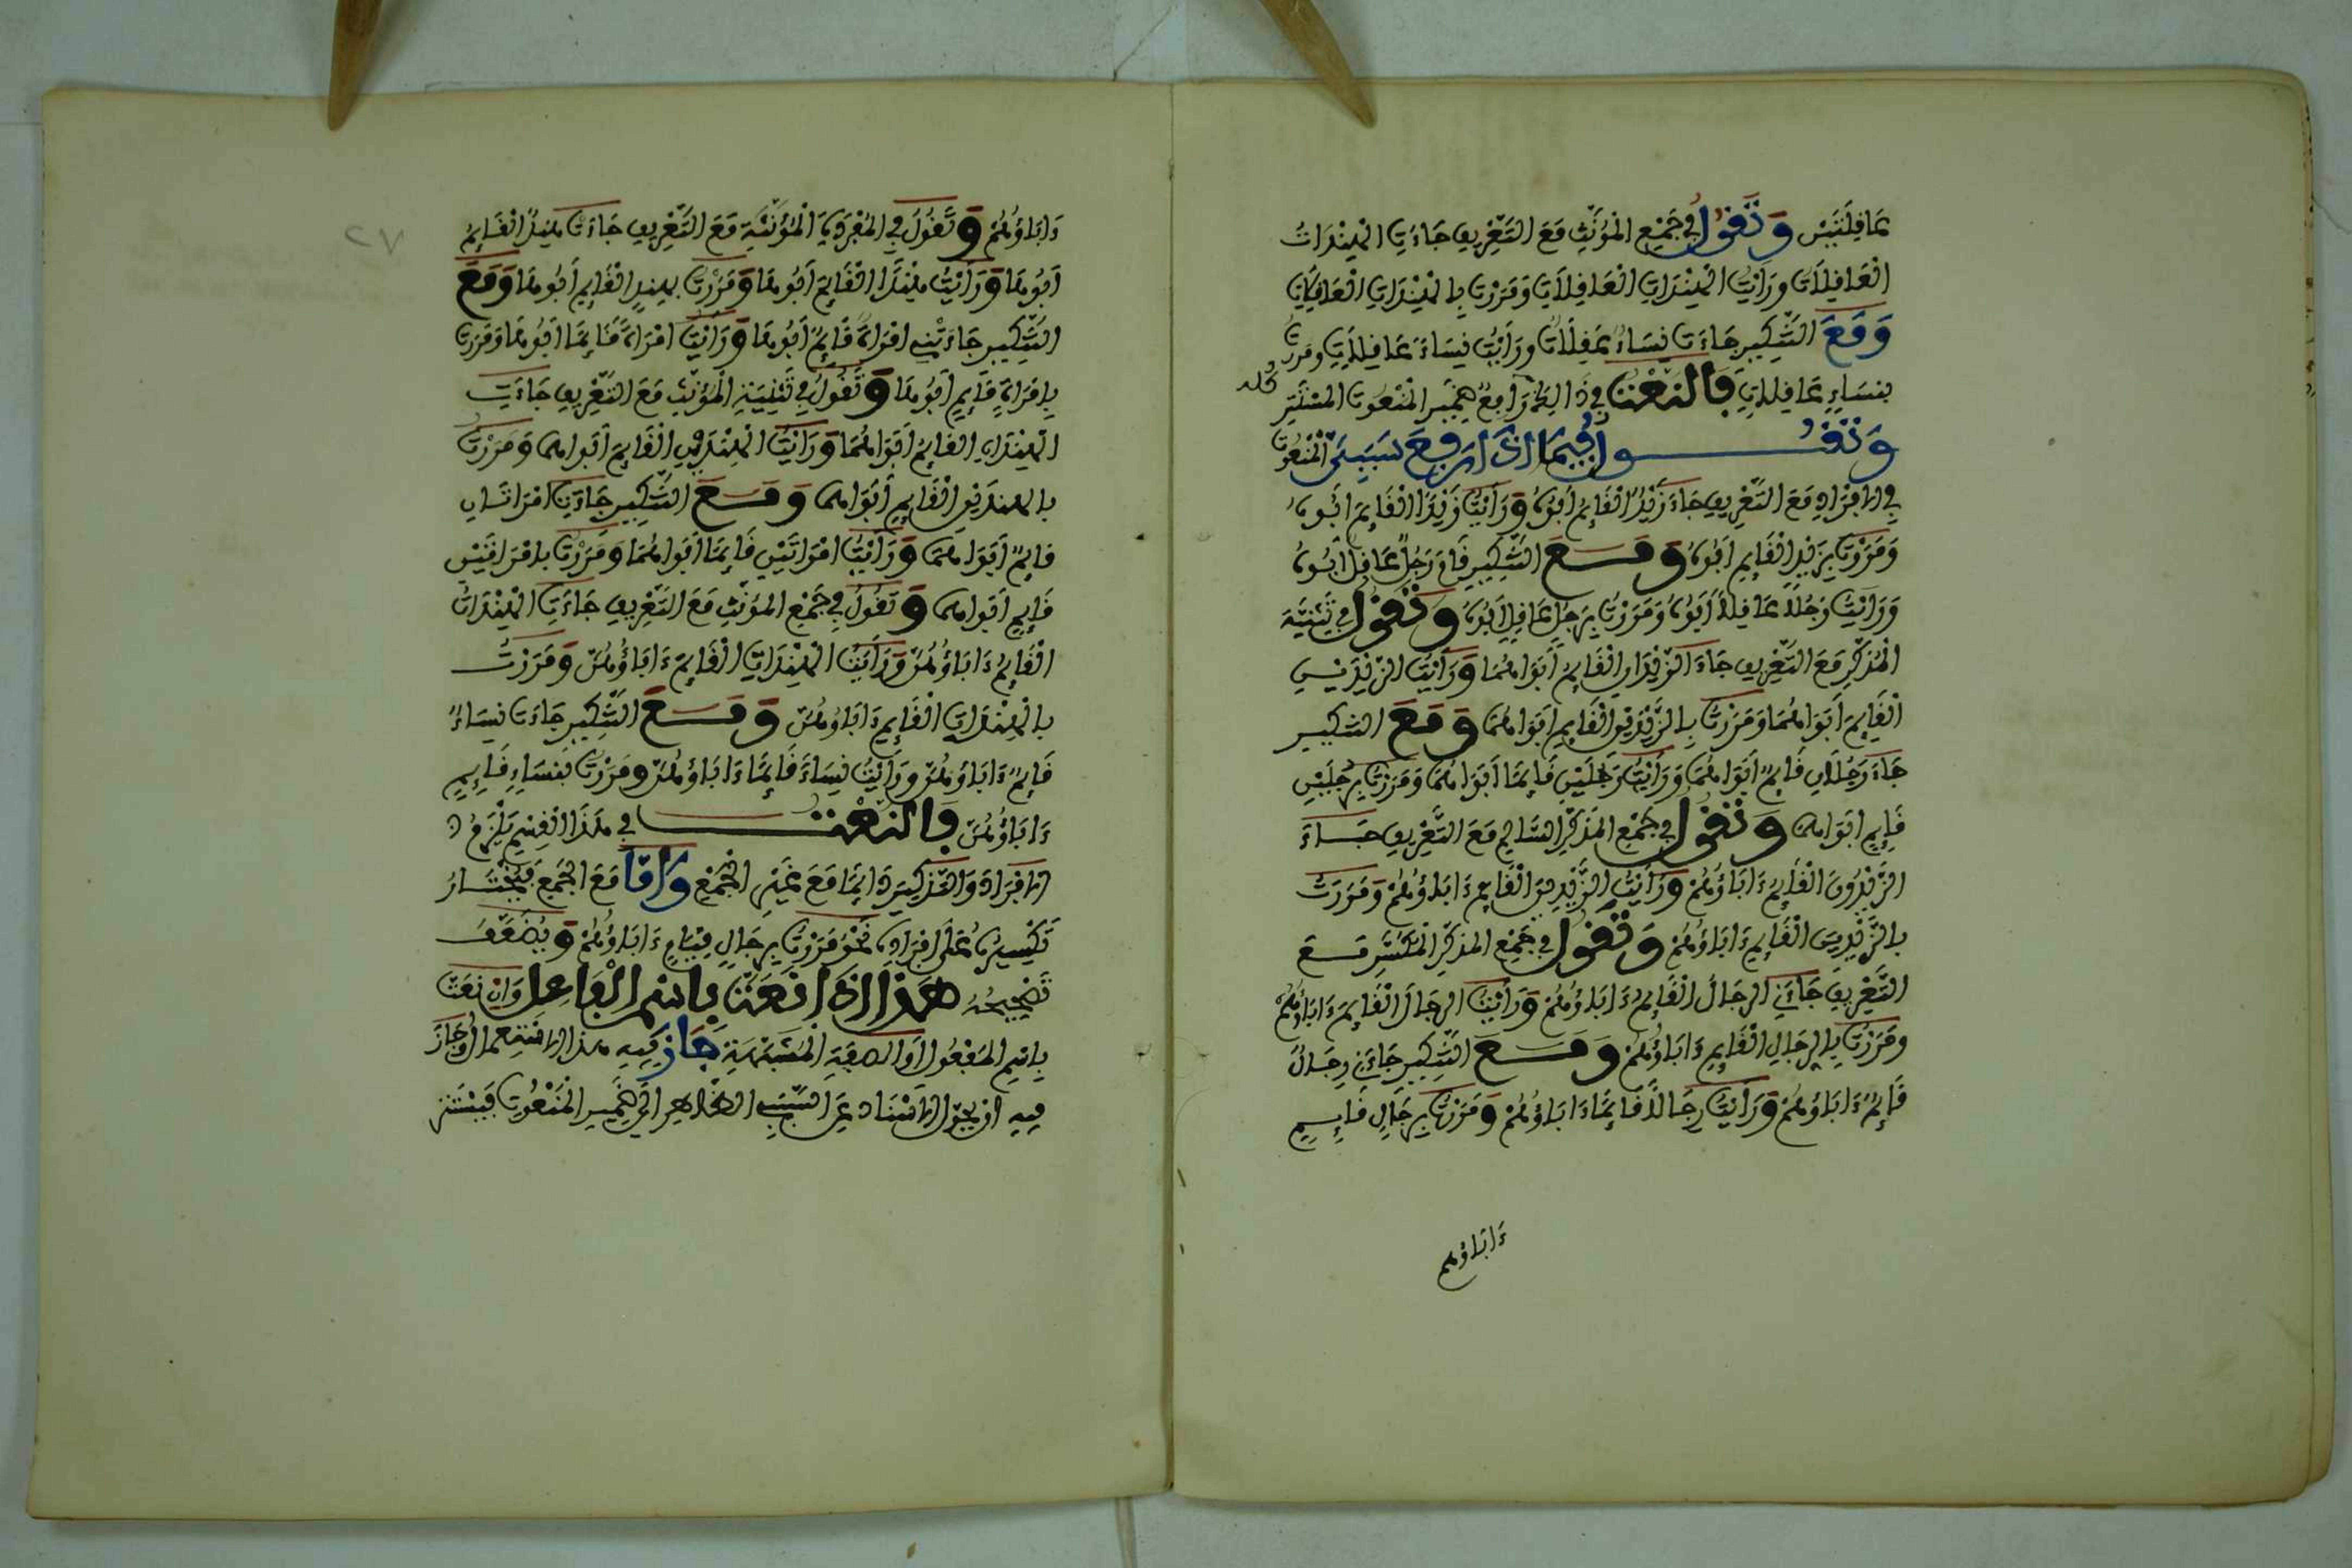 عَافِلَتَيْنِ وَتَقُولُ فِي جَمْعِ الْمُؤَنَّثِ مَعَ التَّعْرِيفِ جَاءَتِ الْهِنْدَاتُ
الْعَافِلَاتُ وَرَأَيْتُ الْهِنْدَاتِ الْعَافِلَاتِ وَمَرَرْتُ بِالْهِنْدَاتِ الْعَافِلَاتِ
وَمَعَ التَّنْكِيرِ جَاءَتْ نِسَاءٌ عَافِلَاتٌ وَرَأَيْتُ نِسَاءً عَافِلَاتٍ وَمَرَرْتُ
بِنِسَاءٍ عَافِلَاتٍ فَالنَّعْتُ فِي ذَالِكَ كُلِّهِ رَافِعٌ ضَمِيرَ الْمَنْعُوتِ الْمُسْتَتِرَ
وَتَقُولُ فِيمَا إِذَا رَفَعَ سَبَبِيَّ الْمَنْعُوتِ
فِي الْإِفْرَادِ مَعَ التَّعْرِيفِ جَاءَ زَيْدٌ الْقَائِمُ أَبُوهُ وَرَأَيْتُ زَيْدًا الْقَائِمَ أَبُوهُ
وَمَرَرْتُ بِزَيْدٍ الْقَائِمِ أَبُوهُ وَمَعَ التَّنْكِيرِ قَامَ رَجُلٌ عَافِلٌ أَبُوهُ
وَرَأَيْتُ رَجُلًا عَافِلًا أَبُوهُ وَمَرَرْتُ بِرَجُلٍ عَافِلٍ أَبُوهُ وَتَقُولُ فِي تَثْنِيَةِ
الْمُذَكَّرِ مَعَ التَّعْرِيفِ جَاءَ الزَّيْدَانِ الْقَائِمُ أَبَوَاهُمَا وَرَأَيْتُ الزَّيْدَيْنِ
الْقَائِمَ أَبَوَاهُمَا وَمَرَرْتُ بِالزَّيْدَيْنِ الْقَائِمِ أَبَوَاهُمَا وَمَعَ التنكير
جَاءَ رَجُلَانِ قَائِمٌ أَبَوَاهُمَا وَرَأَيْتُ رَجُلَيْنِ قَائِمًا أَبَوَاهُمَا وَمَرَرْتُ بِرَجُلَيْنِ
قَائِمٍ أَبَوَاهُمَا وَتَقُولُ فِي جَمْعِ الْمُذَكَّرِ السَّالِمِ مَعَ التَّعْرِيفِ جَاءَ
الزَّيْدُونَ الْقَائِمُ ءَابَاؤُهُمْ وَرَأَيْتُ الزَّيْدِينَ الْقَائِمَ ءَابَاؤُهُمْ وَمَرَرْتُ
بِالزَّيْدِينَ الْقَائِمِ ءَابَاؤُهُمْ وَتَقُولُ فِي جَمْعِ الْمُذَكَّرِ الْمُكَسَّرِ مَعَ
التَّعْرِيفِ جَاءَنِي الرِّجَالُ الْقَائِمُ ءَابَاؤُهُمْ وَرَأَيْتُ الرِّجَالَ الْقَائِمَ ءَابَاؤُهُمْ
وَمَرَرْتُ بِالرِّجَالِ الْقَائِمِ ءَابَاؤُهُمْ وَمَعَ التَّنْكِيرِ جَاءَنِي رِجَالٌ
قَائِمٌ ءَابَاؤُهُمْ وَرَأَيْتُ رِجَالًا قَائِمًا ءَابَاؤُهُمْ وَمَرَرْتُ بِرِجَالٍ قَائِمٍ
ءَابَاؤُهم
٢٧
ءَابَاؤُهُمْ وَتَقُولُ فِي الْمُفْرَدَةِ الْمُؤَنَّثَةِ مَعَ التَّعْرِيفِ جَاءَتْ هِنْدٌ الْقَائِمُ
أَبُوهَا وَرَأَيْتُ هِنْدًا الْقَائِمَ أَبُوهَا وَمَرَرْتُ بِهِنْدٍ الْقَائِمِ أَبُوهَا وَمَعَ
التَّنْكِيرِ جَاءَتْنِي امْرَأَةٌ قَائِمٌ أَبُوهَا وَرَأَيْتُ امْرَأَةً قَائِمًا أَبُوهَا وَمَرَرْتُ
بِامْرَأَةٍ قَائِمٍ أَبُوهَا وَتَقُولُ فِي تَثْنِيَةِ الْمُؤَنَّثِ مَعَ التَّعْرِيفِ جَاءَتِ
الْهِنْدَانِ الْقَائِمُ أَبَوَاهُمَا وَرَأَيْتُ الْهِنْدَيْنِ الْقَائِمَ أَبَوَاهُمَا وَمَرَرْتُ
بِالْهِنْدَيْنِ الْقَائِمِ أَبَوَاهُمَا وَمَعَ التَّنْكِيرِ جَاءَتْ امْرَأَتَانِ
قَائِمٌ أَبَوَاهُمَا وَرَأَيْتُ امْرَأَتَيْنِ قَائِمًا أَبَوَاهُمَا وَمَرَرْتُ بِامْرَأَتَيْنِ
قَائِمٍ أَبَوَاهُمَا وَتَقُولُ فِي جَمْعِ الْمُؤَنَّثِ مَعَ التَّعْرِيفِ جَاءَتِ الْهِنْدَاتُ
الْقَائِمُ ءَابَاؤُهُنَّ وَرَأَيْتُ الْهِنْدَاتِ الْقَائِمَ ءَابَاؤُهُنَّ وَمَرَرْتُ
بِالْهِنْدَاتِ الْقَائِمِ ءَابَاؤُهُنَّ وَمَعَ التَّنْكِيرِ جَاءَتْ نِسَاءٌ
قَائِمٌ ءَابَاؤُهُنَّ وَرَأَيْتُ نِسَاءً قَائِمًا ءَابَاؤُهُنَّ وَمَرَرْتُ بِنِسَاءٍ قَائِمٍ
ءَابَاؤُهُنَّ فَالنَّعْتُ فِي هَذَا الْقِسْمِ يَلْزَمُهُ
الْإِفْرَادُ وَالتَّذْكِيرُ دَائِمًا مَعَ غَيْرِ الْجَمْعِ وَأَمَّا مَعَ الْجَمْعِ فَيُخْتَارُ
تَكْسِيرُهُ عَلَى إِفْرَادِهِ نَحْوُ مَرَرْتُ بِرِجَالٍ قِيَامٍ ءَابَاؤُهُمْ وَيُضَعَّفُ
تَصْحِيحُهُ هَذَا إِذَا نُعِتَ بِاسْمِ الْفَاعِلِ وَإِنْ نُعِتَ
بِاسْمِ الْمَفْعُولِ أَوِ الصِّفَةِ الْمُشَبَّهَةِ جَازَ فِيهِ هذا الاستعمال وَجَازَ
فِيهِ أَنْ يُحَوَّلَ الْإِسْنَادُ عَنِ السَّبَبِيِّ الظَّاهِرِ إِلَى ضَمِيرِ الْمَنْعُوتِ فَيَسْتَتِرُ